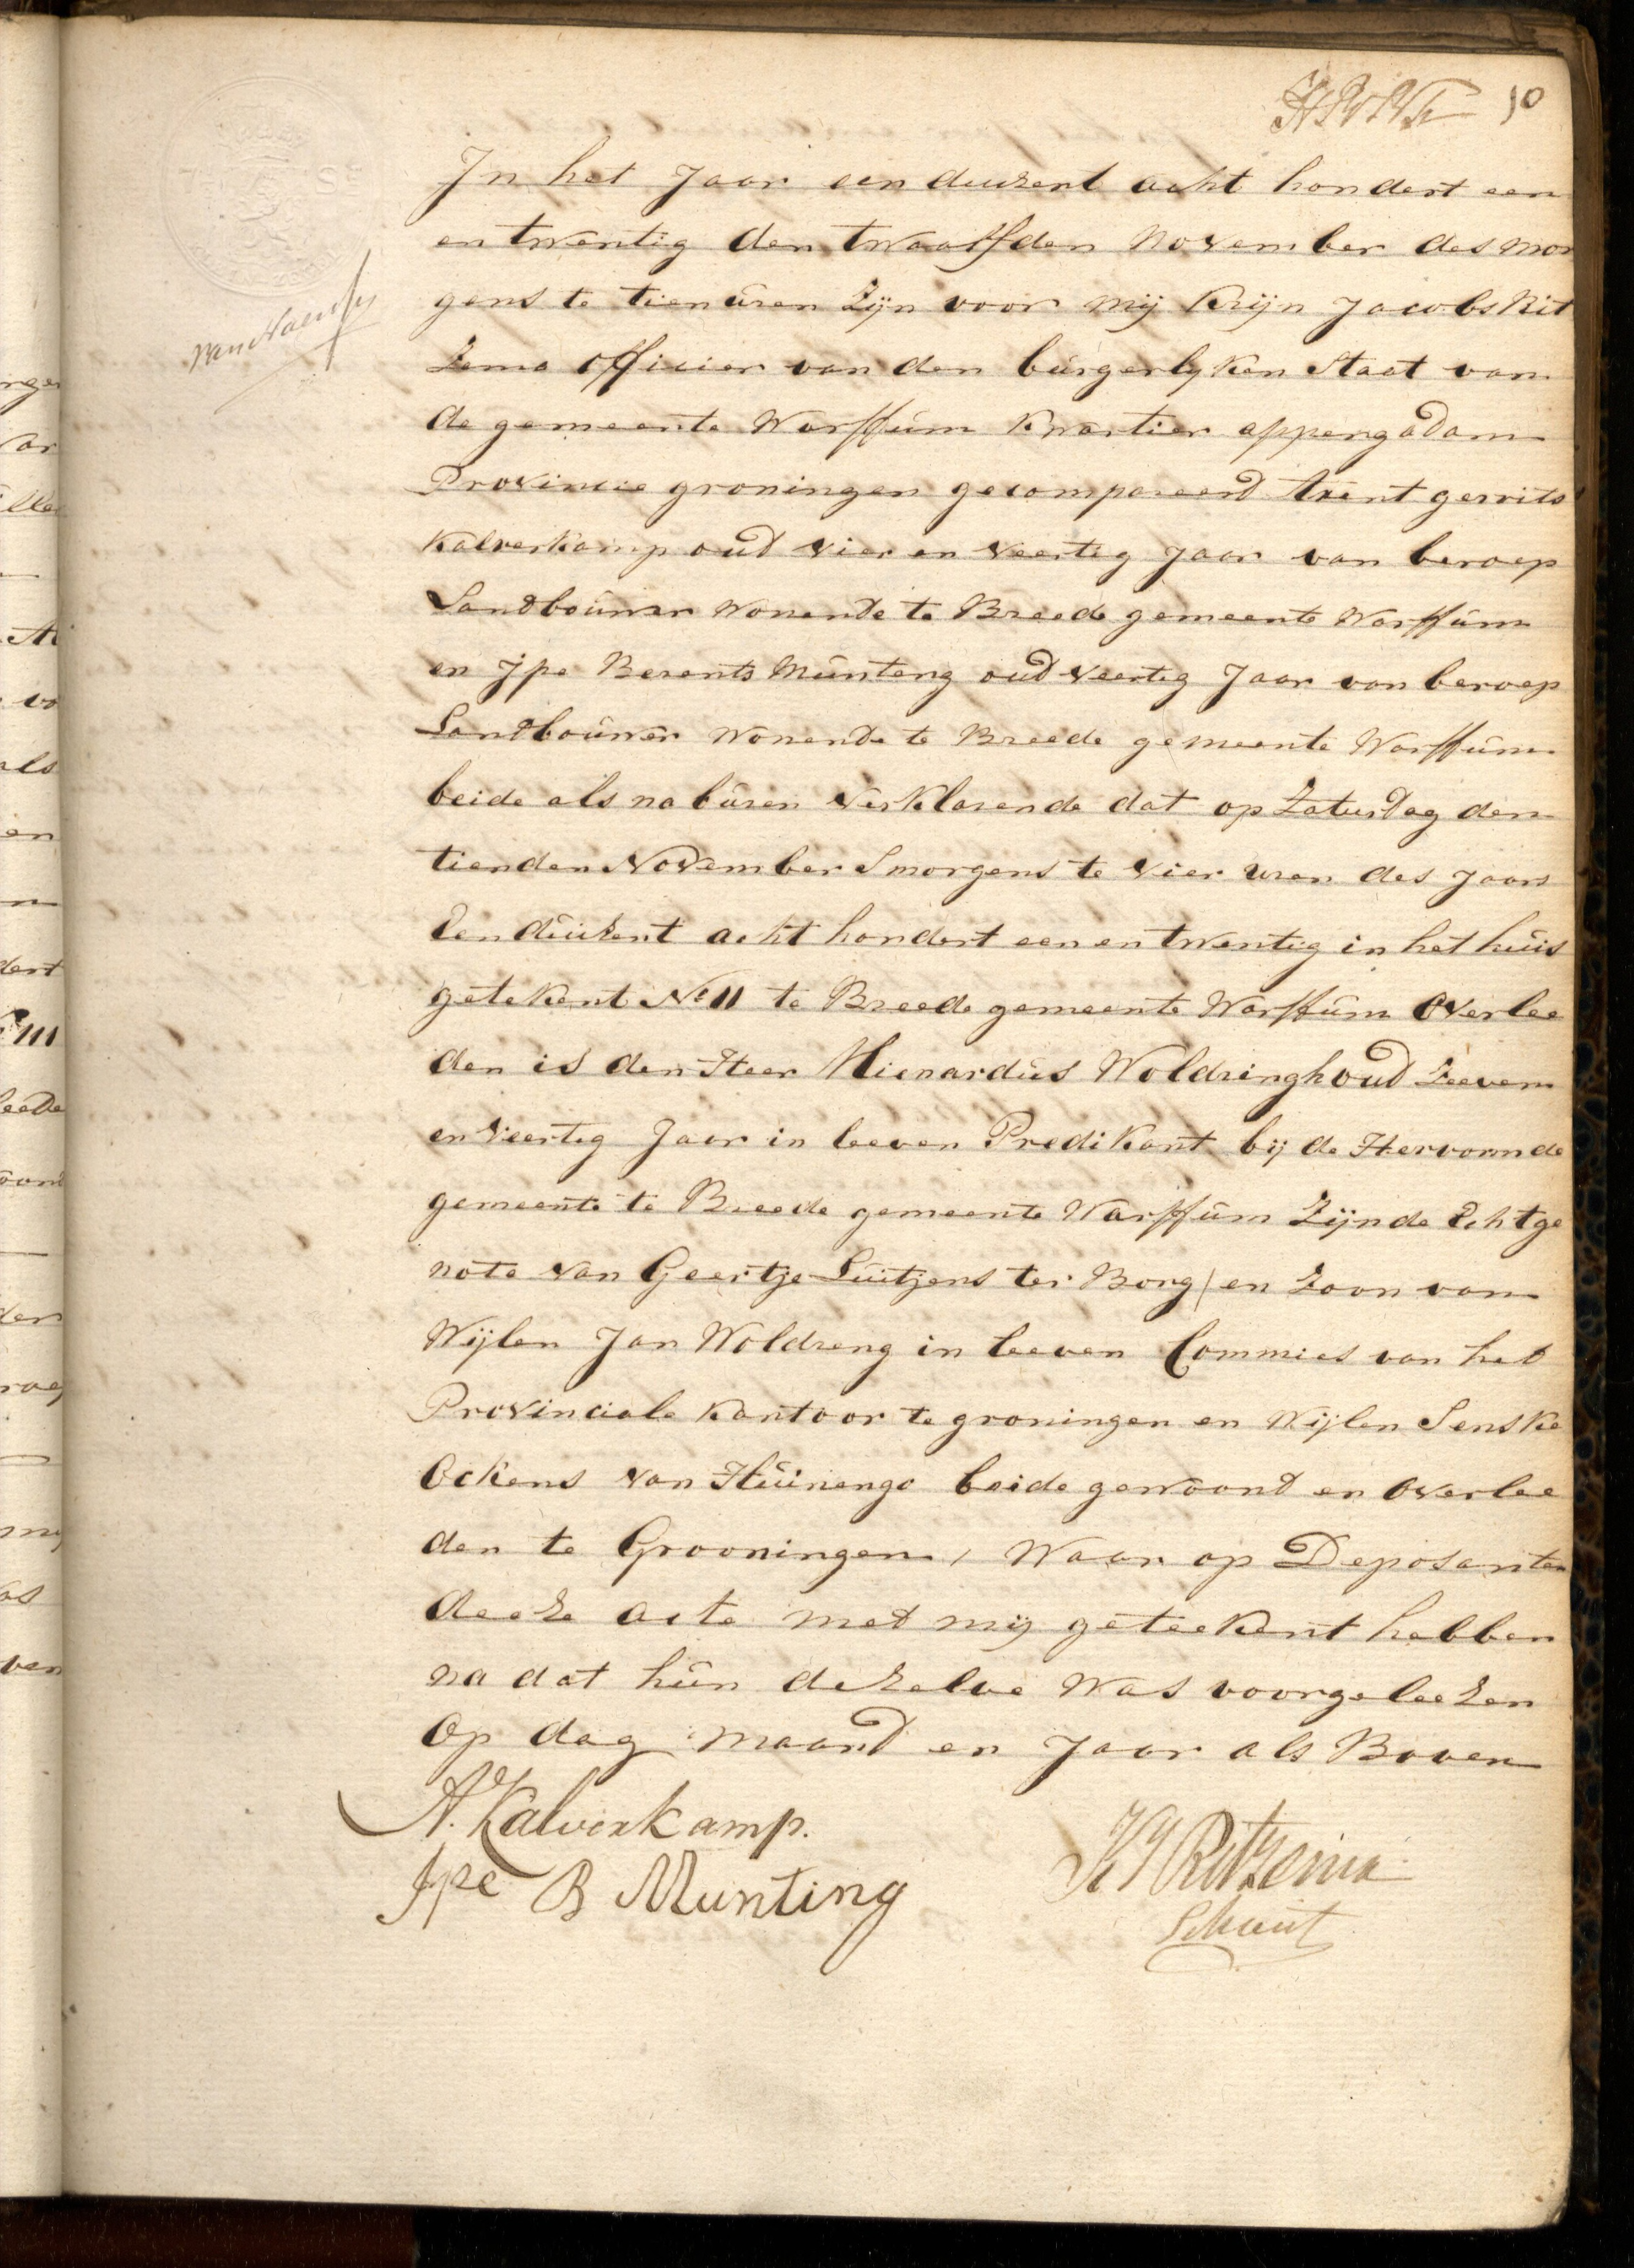 10
In het Jaar een duizent acht hondert een
en twentig den twaalfden November des mor
gens te tien uren Zijn voor mij Krijn Jacobs Rit
Zema officier van den burgerlyken Staat van
de gemeente Warffum Kwartier appengadam
Provincie groningen gecompareerd Arent gerrits
Kalverkamp oud vier en veertig Jaar van beroep
Landbouwer Wonende te Breede gemeente Warffum
en Jpe Berents Munteng oud veertig Jaar van beroep
Landbouwer Wonende te Breede gemeente Warffum
beide als naburen verklarende dat op Zaturdag den
tienden November Smorgens te vier uren des Jaars
Een duizent acht hondert een en twentig in het huis
getekent No 11 te Breede gemeente Warffum Overlee
den is den Heer Mienardus Woldringh oud Zeeven
en veertig Jaar in leeven Predikant bij de Hervormde
gemeente te Breede gemeente Warffum Zijnde Echtge
note van Geertje Luitjens ter Borg / en Zoon van
Wijlen Jan Woldreng in leeven Commies van het
Provinciale Kantoor te groningen en Wijlen Senske
Ockens van Huinengo beide gewoond en Overlee
den te Grooningen, Waar op Deposanten
deeze acte met mij geteekent hebben
na dat hun dezelve Was voorgeleezen
Op dag maand en Jaar als Boven
A. Kalverkamp.
Jpe B Munting
KJ Ritzema
Schout